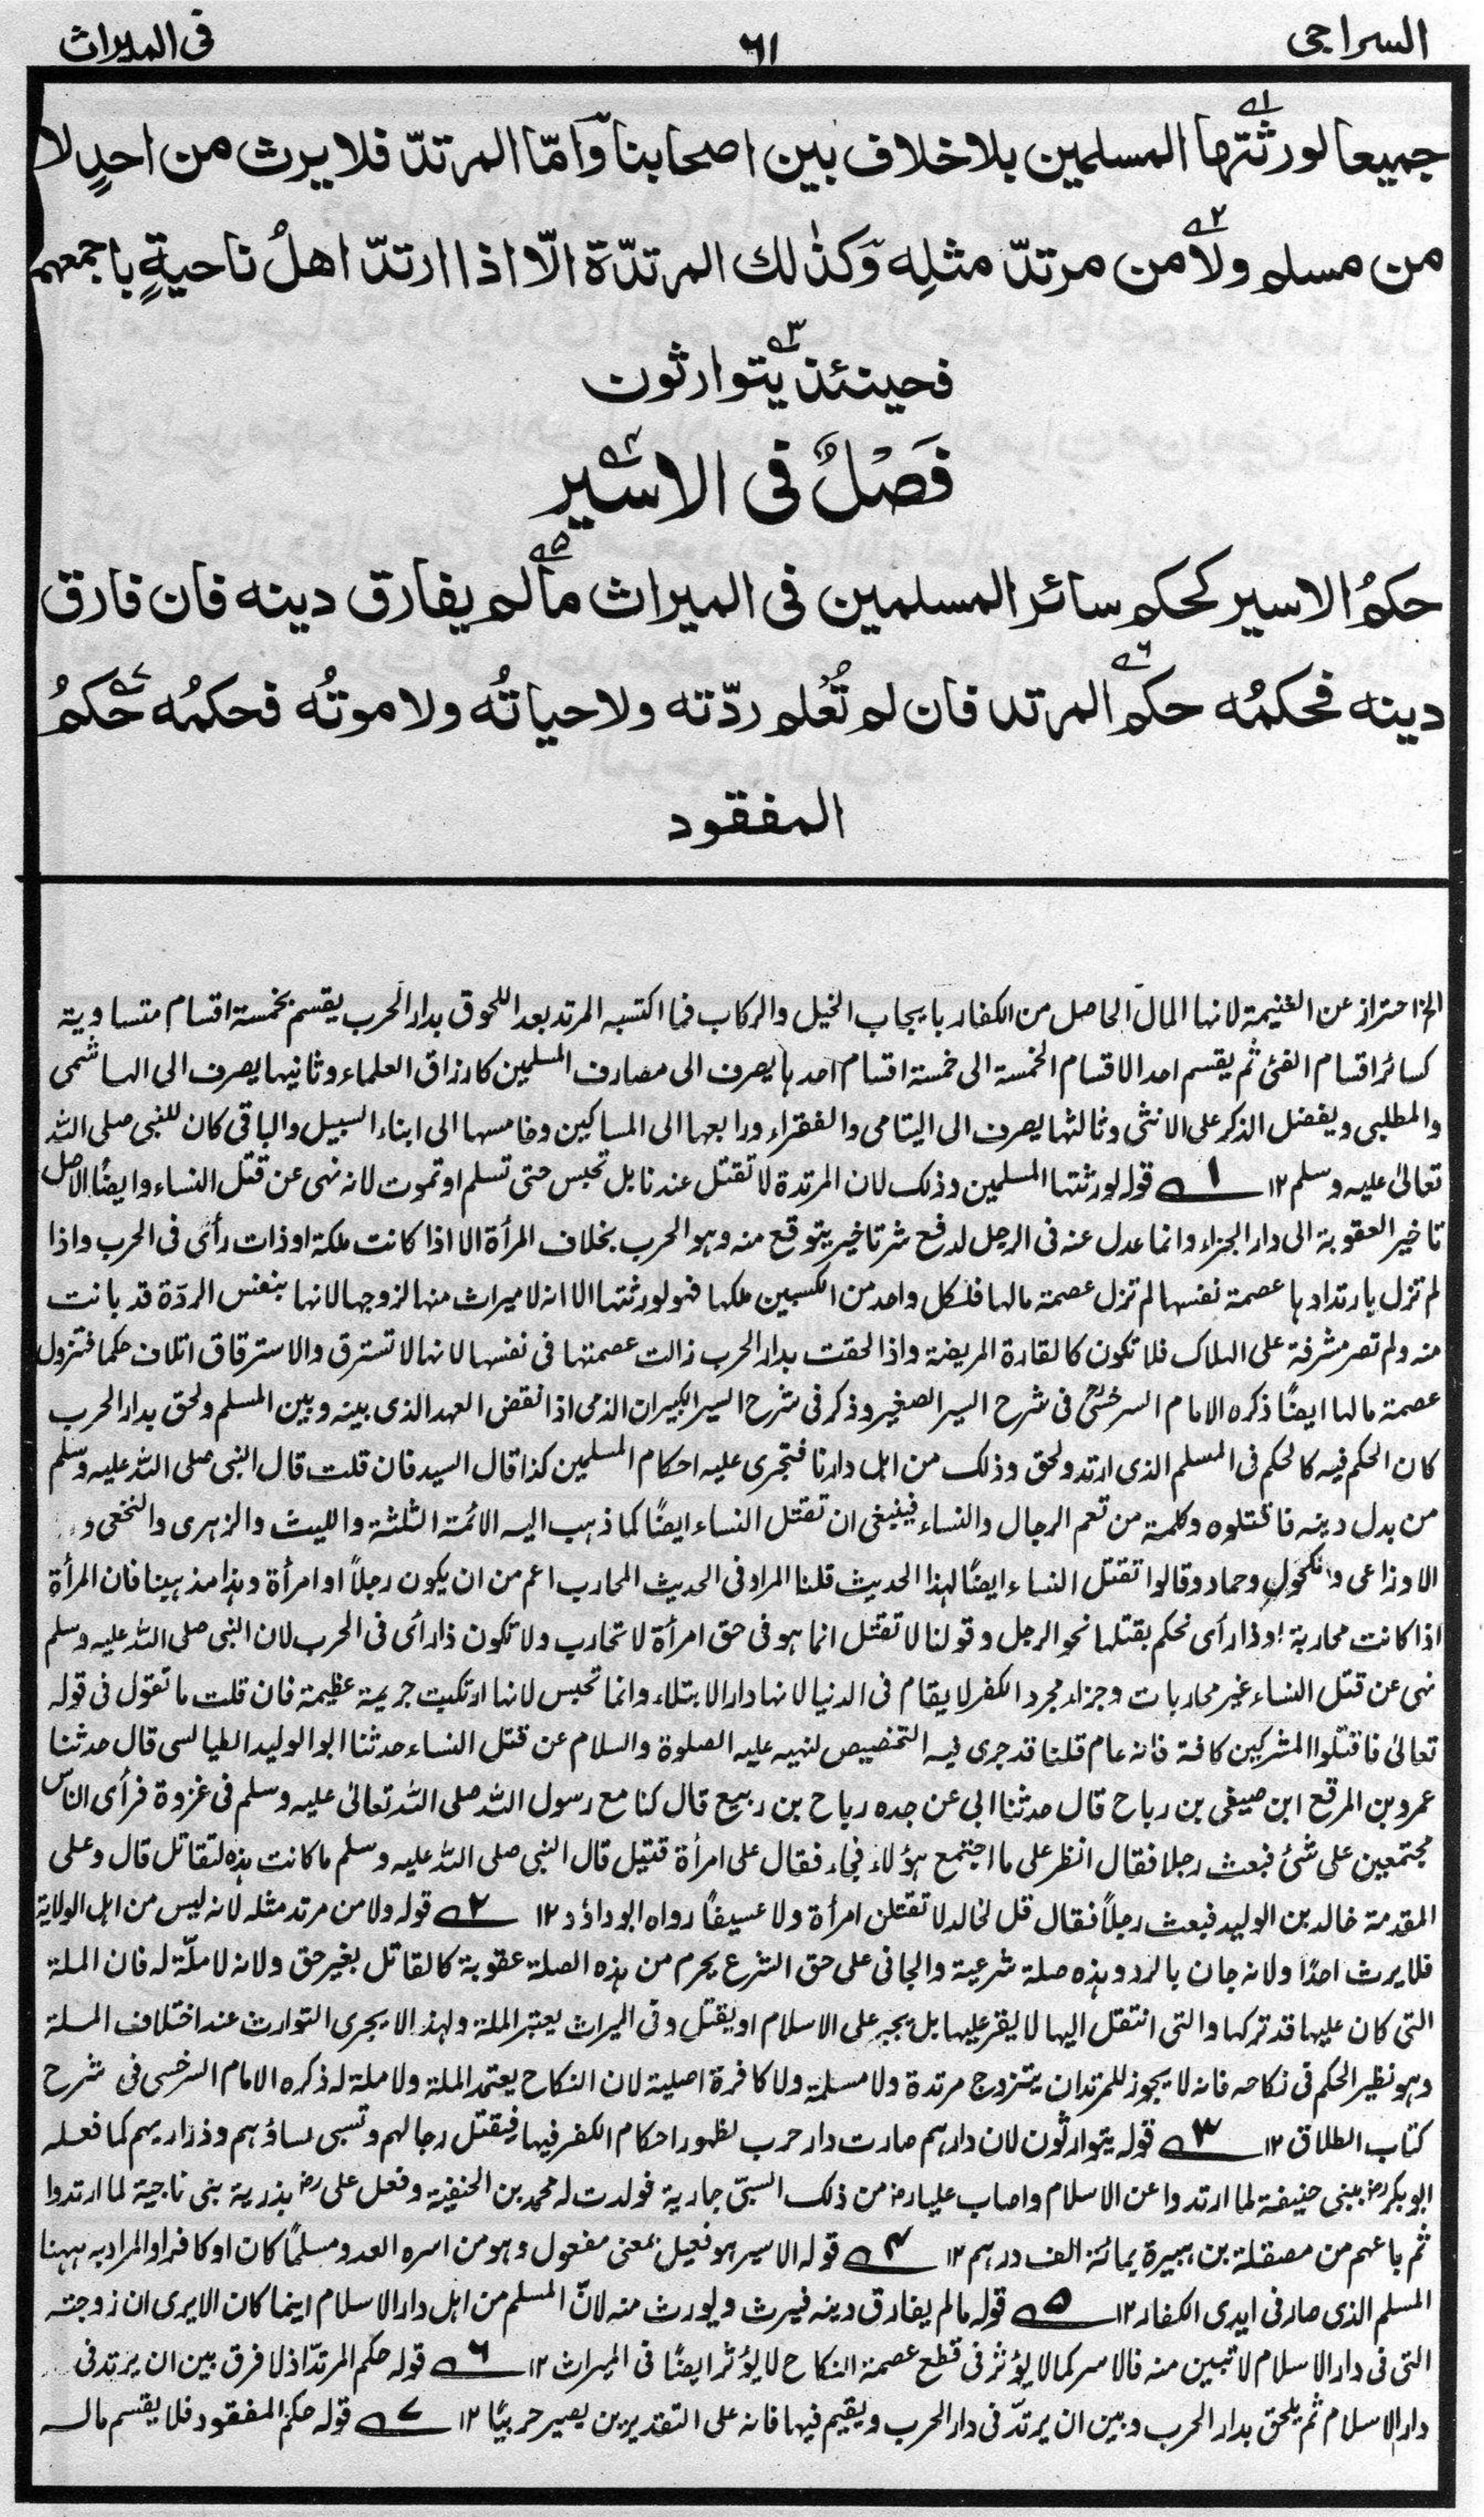 السراجی ٦١ فی المیراث
جميعا لورثتها المسلمين بلاخلاف بين اصحابنا وَاَمّا المرتدّ فلايرث من احدٍ لا
من مسلم ولا من مرتدّ مثلِه وَكذٰلك المرتدّة الّا اذا ارتدّ اهلُ ناحيةٍ باجمعهم
فحينئذ يتوارثون
فَصْلٌ فى الاسير
حكمُ الاسير كحكم سائر المسلمين فى الميراث مالم يفارق دينه فان فارق
دينه فحكمُه حكم المرتد فان لم تُعلم ردّته ولاحياتُه ولاموتُه فحكمُه حُكمُ
المفقود
الخ احتراز عن الغنيمة لانها المال الحاصل من الكفار بايجاب الخيل والركاب فما اكتسبه المرتد بعد اللحوق بدار الحرب يقسم بخمسة اقسام متساوية
كسائر اقسام الفئ ثم يقسم احد الاقسام الخمسة الى خمسة اقسام احدها يصرف الى مصارف المسلمين كارزاق العلماء وثانيها يصرف الى الهاشمى
والمطلبى ويفضل الذكر على الانثى وثالثها يصرف الى اليتامى والفقراء ورابعها الى المساكين وخامسها الى ابناء السبيل والباقى كان للنبى صلى الله
تعالىٰ عليه وسلم ١٢ ١ قوله لورثتها المسلمين وذلك لان المرتدة لا تقتل عندنا بل تحبس حتى تسلم او تموت لانه نهى عن قتل النساء وايضًا الاصل
تاخير العقوبة الى دار الجزاء وانما عدل عنه فى الرجل لدفع شر تاخير يتوقع منه وهو الحرب بخلاف المرأة الا اذا كانت ملكة او ذات رأى فى الحرب واذا
لم تزل بارتدادها عصمة نفسها لم تزل عصمة مالها فلكل واحد من الكسبين ملكها فهو لورثتها الا انه لا ميراث منها لزوجها لانها بنفس الردّة قد بانت
منه ولم تصر مشرفة على الهلاك فلا تكون كالقادة المريضة واذا لحقت بدار الحرب زالت عصمتها فى نفسها لانها لا تسترق والاسترقاق اتلاف حكما فتزول
عصمة مالها ايضًا ذكره الامام السرخسى فى شرح السير الصغير وذكر فى شرح السير الكبير ان الذمى اذا نقض العهد الذى بينه وبين المسلم ولحق بدار الحرب
كان الحكم فيه كالحكم فى المسلم الذى ارتد ولحق وذلك من اهل دارنا فتجرى عليه احكام المسلمين كذا قال السيد فان قلت قال النبى صلى الله عليه وسلم
من بدل دينه فاقتلوه وكلمة من تعم الرجال والنساء فينبغى ان تقتل النساء ايضًا كما ذهب اليه الائمة الثلثة والليث والزهرى والنخعى و
الاوزاعى ومكحول وحماد وقالوا تقتل النساء ايضًا لهذا الحديث قلنا المراد فى الحديث المحارب اعم من ان يكون رجلاً او امرأة وهذا مذهبنا فان المرأة
اذا كانت محاربة او ذا رأى نحكم بقتلها نحو الرجل وقولنا لا تقتل انما هو فى حق امرأة لا تحارب ولا تكون ذا رأى فى الحرب لان النبى صلى الله عليه وسلم
نهى عن قتل النساء غير محاربات وجزاء مجرد الكفر لا يقام فى الدنيا لانها دار الابتلاء وانما تحبس لانها ارتكبت جريمة عظيمة فان قلت ما تقول فى قوله
تعالىٰ فاقتلوا المشركين كافة فانه عام قلنا قد جرى فيه التخصيص لنهيه عليه الصلوة والسلام عن قتل النساء حدثنا ابو الوليد الطيالسى قال حدثنا
عمرو بن المرقع ابن صيفى بن رباح قال حدثنا ابى عن جده رباح بن ربيع قال كنا مع رسول الله صلى الله تعالىٰ عليه وسلم فى غزوة فرأى الناس
مجتمعين على شئ فبعث رجلا فقال انظر على ما اجتمع هؤلاء فجاء فقال على امرأة قتيل قال النبى صلى الله عليه وسلم ما كانت هذه لتقاتل قال وعلى
المقدمة خالد بن الوليد فبعث رجلاً فقال قل لخالد لا تقتلن امرأة ولا عسيفًا رواه ابو داؤد ١٢ ٢ قوله ولا من مرتد مثله لانه ليس من اهل الولاية
فلا يرث احدًا ولانه جان بالردة وهذه صلة شرعية والجانى على حق الشرع يحرم من هذه الصلة عقوبة كالقاتل بغير حق ولانه لا ملّة له فان الملة
التى كان عليها قد تركها والتى انتقل اليها لا يقر عليها بل يجبر على الاسلام او يقتل وفى الميراث يعتبر الملة ولهذا لا يجرى التوارث عند اختلاف الملة
وهو نظير الحكم فى نكاحه فانه لا يجوز للمرتد ان يتزوج مرتدة ولا مسلمة ولا كافرة اصلية لان النكاح يعتمد الملة ولا ملة له ذكره الامام السرخسى فى شرح
كتاب الطلاق ١٢ ٣ قوله يتوارثون لان دارهم صارت دار حرب لظهور احكام الكفر فيها فيقتل رجالهم وتسبى نساؤهم وذراريهم كما فعله
ابوبكرؓ ببنى حنيفة لما ارتدوا عن الاسلام واصاب علياؓ من ذلك السبى جارية فولدت له محمد بن الحنفية وفعل علىؓ بذرية بنى ناجية لما ارتدوا
ثم باعهم من مصقلة بن هبيرة بمائة الف درهم ١٢ ٤ قوله الاسير هو فعيل بمعنى مفعول وهو من اسره العدو مسلمًا كان او كافرا والمراد به ههنا
المسلم الذى صار فى ايدى الكفار ١٢ ٥ قوله مالم يفارق دينه فيرث ويورث منه لانّ المسلم من اهل دار الاسلام اينما كان الايرى ان زوجته
التى فى دار الاسلام لا تبين منه فالاسر كما لا يؤثر فى قطع عصمة النكاح لا يؤثر ايضًا فى الميراث ١٢ ٦ قوله حكم المرتدّ اذ لا فرق بين ان يرتد فى
دار الاسلام ثم يلحق بدار الحرب وبين ان يرتدّ فى دار الحرب ويقيم فيها فانه على التقديرين يصير حربيًا ١٢ ٧ قوله حكم المفقود فلا يقسم ماله